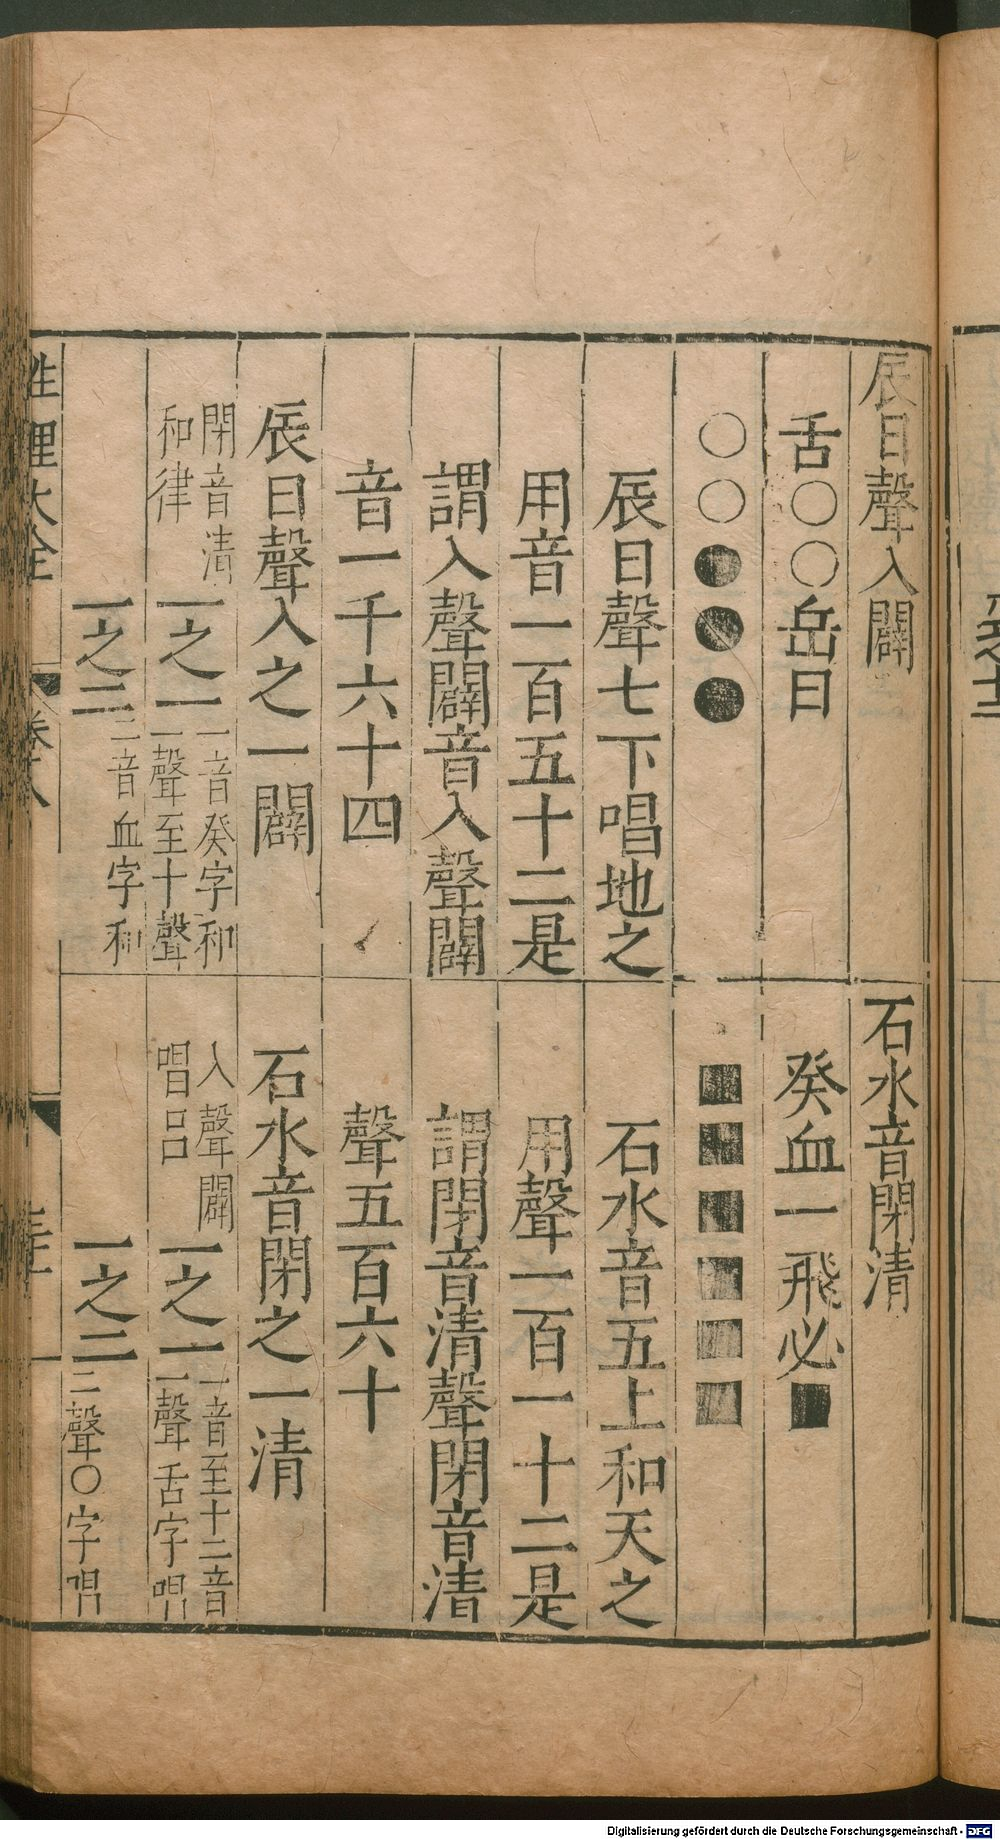 辰日聲入闢
舌○○岳日
○○●●●
辰日聲七下唱地之
用音一百五十二是
謂入聲闢音入聲闢
音一千六十四
辰日聲入之一闢
閉音清
和律
一之一
一音癸字和
一聲至十聲
一之二
二音血字和
石水音閉清
癸血一飛必■
■■■■■■
石水音五上和天之
用聲一百一十二是
謂閉音清聲閉音清
聲五百六十
石水音閉之一清
入聲闢
唱呂
一之一
一音至十二音
一聲舌字唱
一之二
二聲○字唱
性理大全
卷八
Digitalisierung gefördert durch die Deutsche Forschungsgemeinschaft - DFG